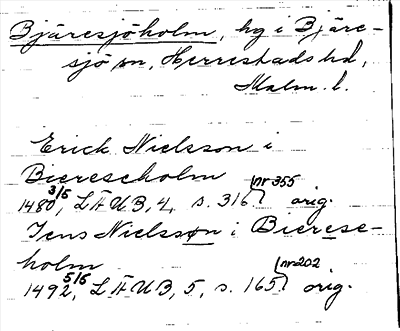 Bjäresjöholm, hg i Bjäre-
sjö sn, Herrestads hd,
Malm. l.
Erick Nielsson i
Bierescholm
1480 3/5, LÄUB, 4, s. 316. (nr 355) orig.
Jens Nielssøn i Bierese-
holm
1492 5/5, LÄUB, 5, s. 165. (nr 202) orig.